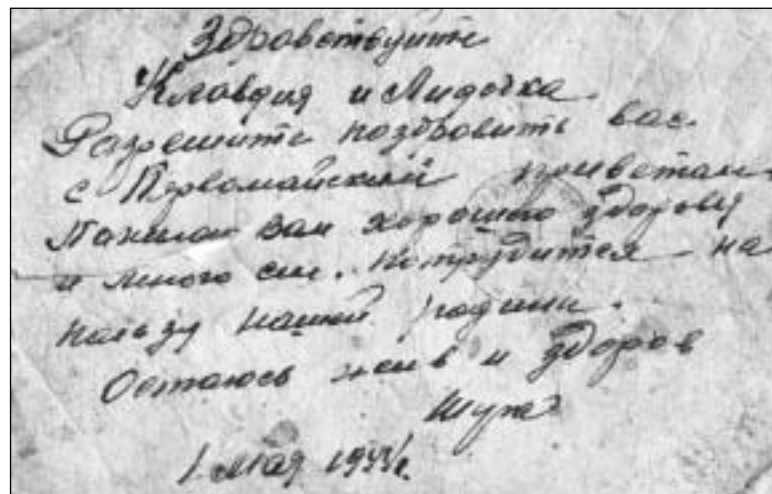 Здравствуйте
Клавдия и Лидочка.
Разрешите поздровить вас.
с Первомайский приветам.
Пожилаю вам хорошего здоровия
и много сил. потрудится на
пользу нашей родины.
Остаюсь жив и здоров
Шура
1 мая 1944 г.